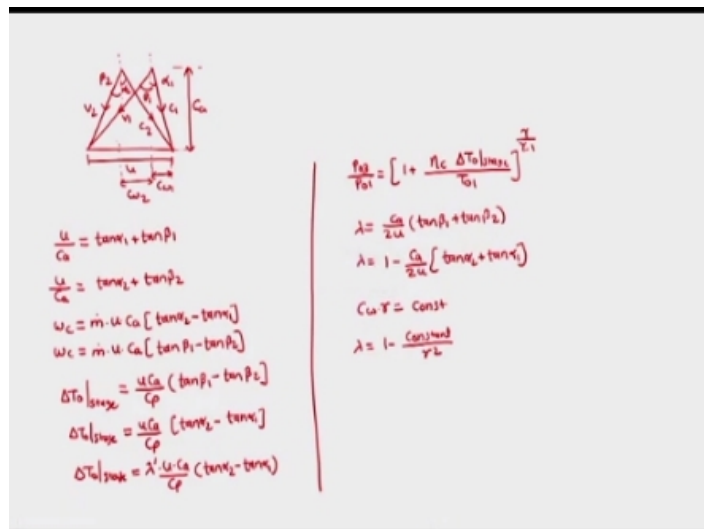 β₂ α₂ β₁ α₁
V₂ V₁ C₂ C₁ Ca
u
Cω₂ Cω₁
u/Ca = tanα₁ + tanβ₁
u/Ca = tanα₂ + tanβ₂
ωc = ṁ·u Ca [tanα₂ - tanα₁]
ωc = ṁ·u·Ca [tanβ₁ - tanβ₂]
ΔT₀|stage = uCa/Cp (tanβ₁ - tanβ₂]
ΔT₀|stage = uCa/Cp [tanα₂ - tanα₁]
ΔT₀|stage = λ'·u·Ca/Cp (tanα₂ - tanα₁)
P₀₃/P₀₁ = [1 + ηc ΔT₀|stage/T₀₁]^(γ/γ-1)
λ = Ca/2u (tanβ₁ + tanβ₂)
λ = 1 - Ca/2u [tanα₂ + tanα₁)
Cω·r = Const
λ = 1 - Constant/r²